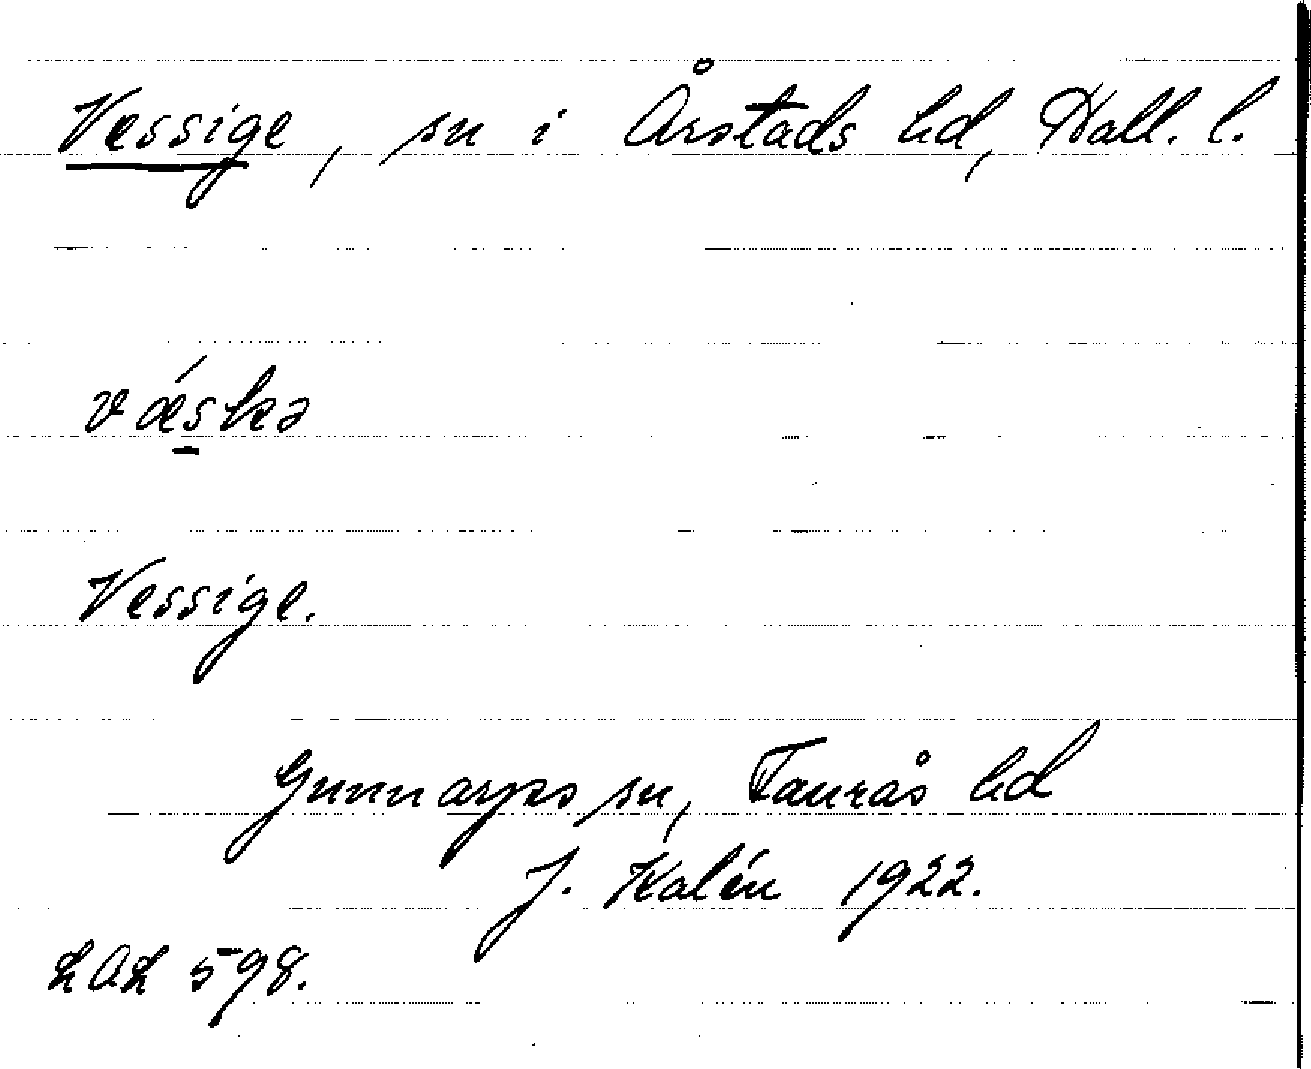 Vessige, sn i Årstads hd, Hall. l.
vǽskə
Vessige.
Gunnarps sn, Faurås hd
J. Kalén 1922.
LAL 598.